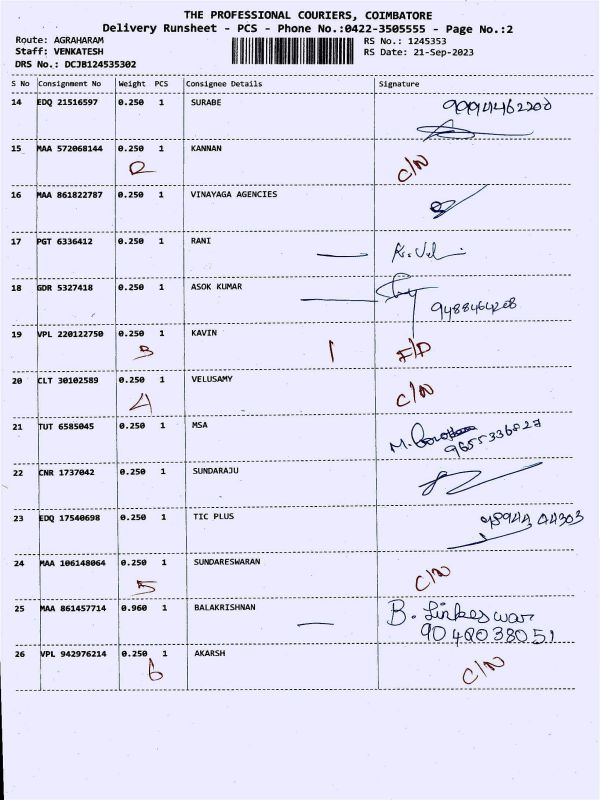 THE PROFESSIONAL COURIERS, COIMBATORE
Delivery Runsheet - PCS - Phone No.:0422-3505555 - Page No.:2
Route: AGRAHARAM
Staff: VENKATESH
DRS No.: DCJB124535302
RS No.: 1245353
RS Date: 21-Sep-2023
S No Consignment No Weight PCS Consignee Details Signature
14 EDQ 21516597 0.250 1 SURABE
15 MAA 572068144 0.250 1 KANNAN C/N
2
16 MAA 861822787 0.250 1 VINAYAGA AGENCIES
17 PGT 6336412 0.250 1 RANI
18 GDR 5327418 0.250 1 ASOK KUMAR
9488464208
19 VPL 220122750 0.250 1 KAVIN
3 1 F/D
20 CLT 30102589 0.250 1 VELUSAMY C/N
4
21 TUT 6585045 0.250 1 MSA
9655336827
22 CNR 1737042 0.250 1 SUNDARAJU
23 EDQ 17540698 0.250 1 TIC PLUS
24 MAA 106148064 0.250 1 SUNDARESWARAN C/N
5
25 MAA 861457714 0.960 1 BALAKRISHNAN B. Linkeswar
9042038051
26 VPL 942976214 0.250 1 AKARSH C/N
6